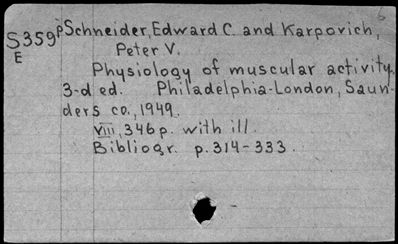 6
S359p Schneider, Edward C. and Karpovich,
E Peter V.
Physiology of muscular activity.
3-d ed. Philadelphia-London, Saun-
ders co., 1949.
VIII, 346 p. with ill.
Bibliogr. p. 314-333.